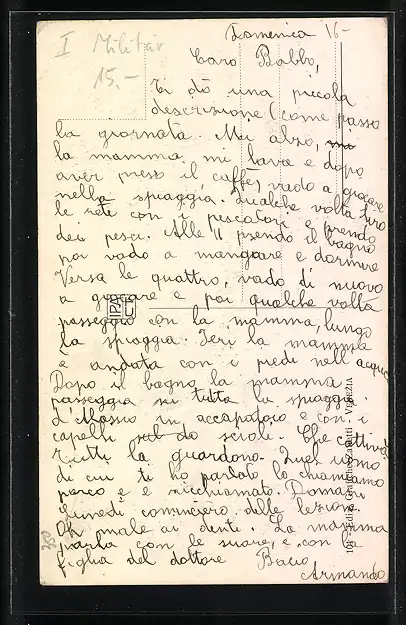 I Militär
15,-
Domenica 16-
Caro Babbo,
Ti dò una piccola
descrizione (come passo
la giornata. Mi alzo,
la mamma mi lava e dopo
aver preso il caffè, vado a giocare
nella spiaggia. Qualche volta tiro
le reti con i pescatori e prendo
dei pesci. Alle 11 prendo il bagno
poi vado a mangiare e dormire
Verso le quattro, vado di nuovo
a giocare e poi qualche volta
passeggio con la mamma, lungo
la spiaggia. Ieri la mamma
è andata con i piedi nell'acqua
Dopo il bagno la mamma
passeggia su tutta la spiaggia
d'Alassio in accapatoio e con i
capelli sul da scioli. Che cattiva
tutti la guardono. Quel uomo
di cui ti ho parlato lo chiamiamo
porco e è ricchiomato. Domani
lunedì comincerò delle lezioni.
Oh male ai denti. La mamma
parla con le suore, e con la
figlia del dottore Bacio
Armando